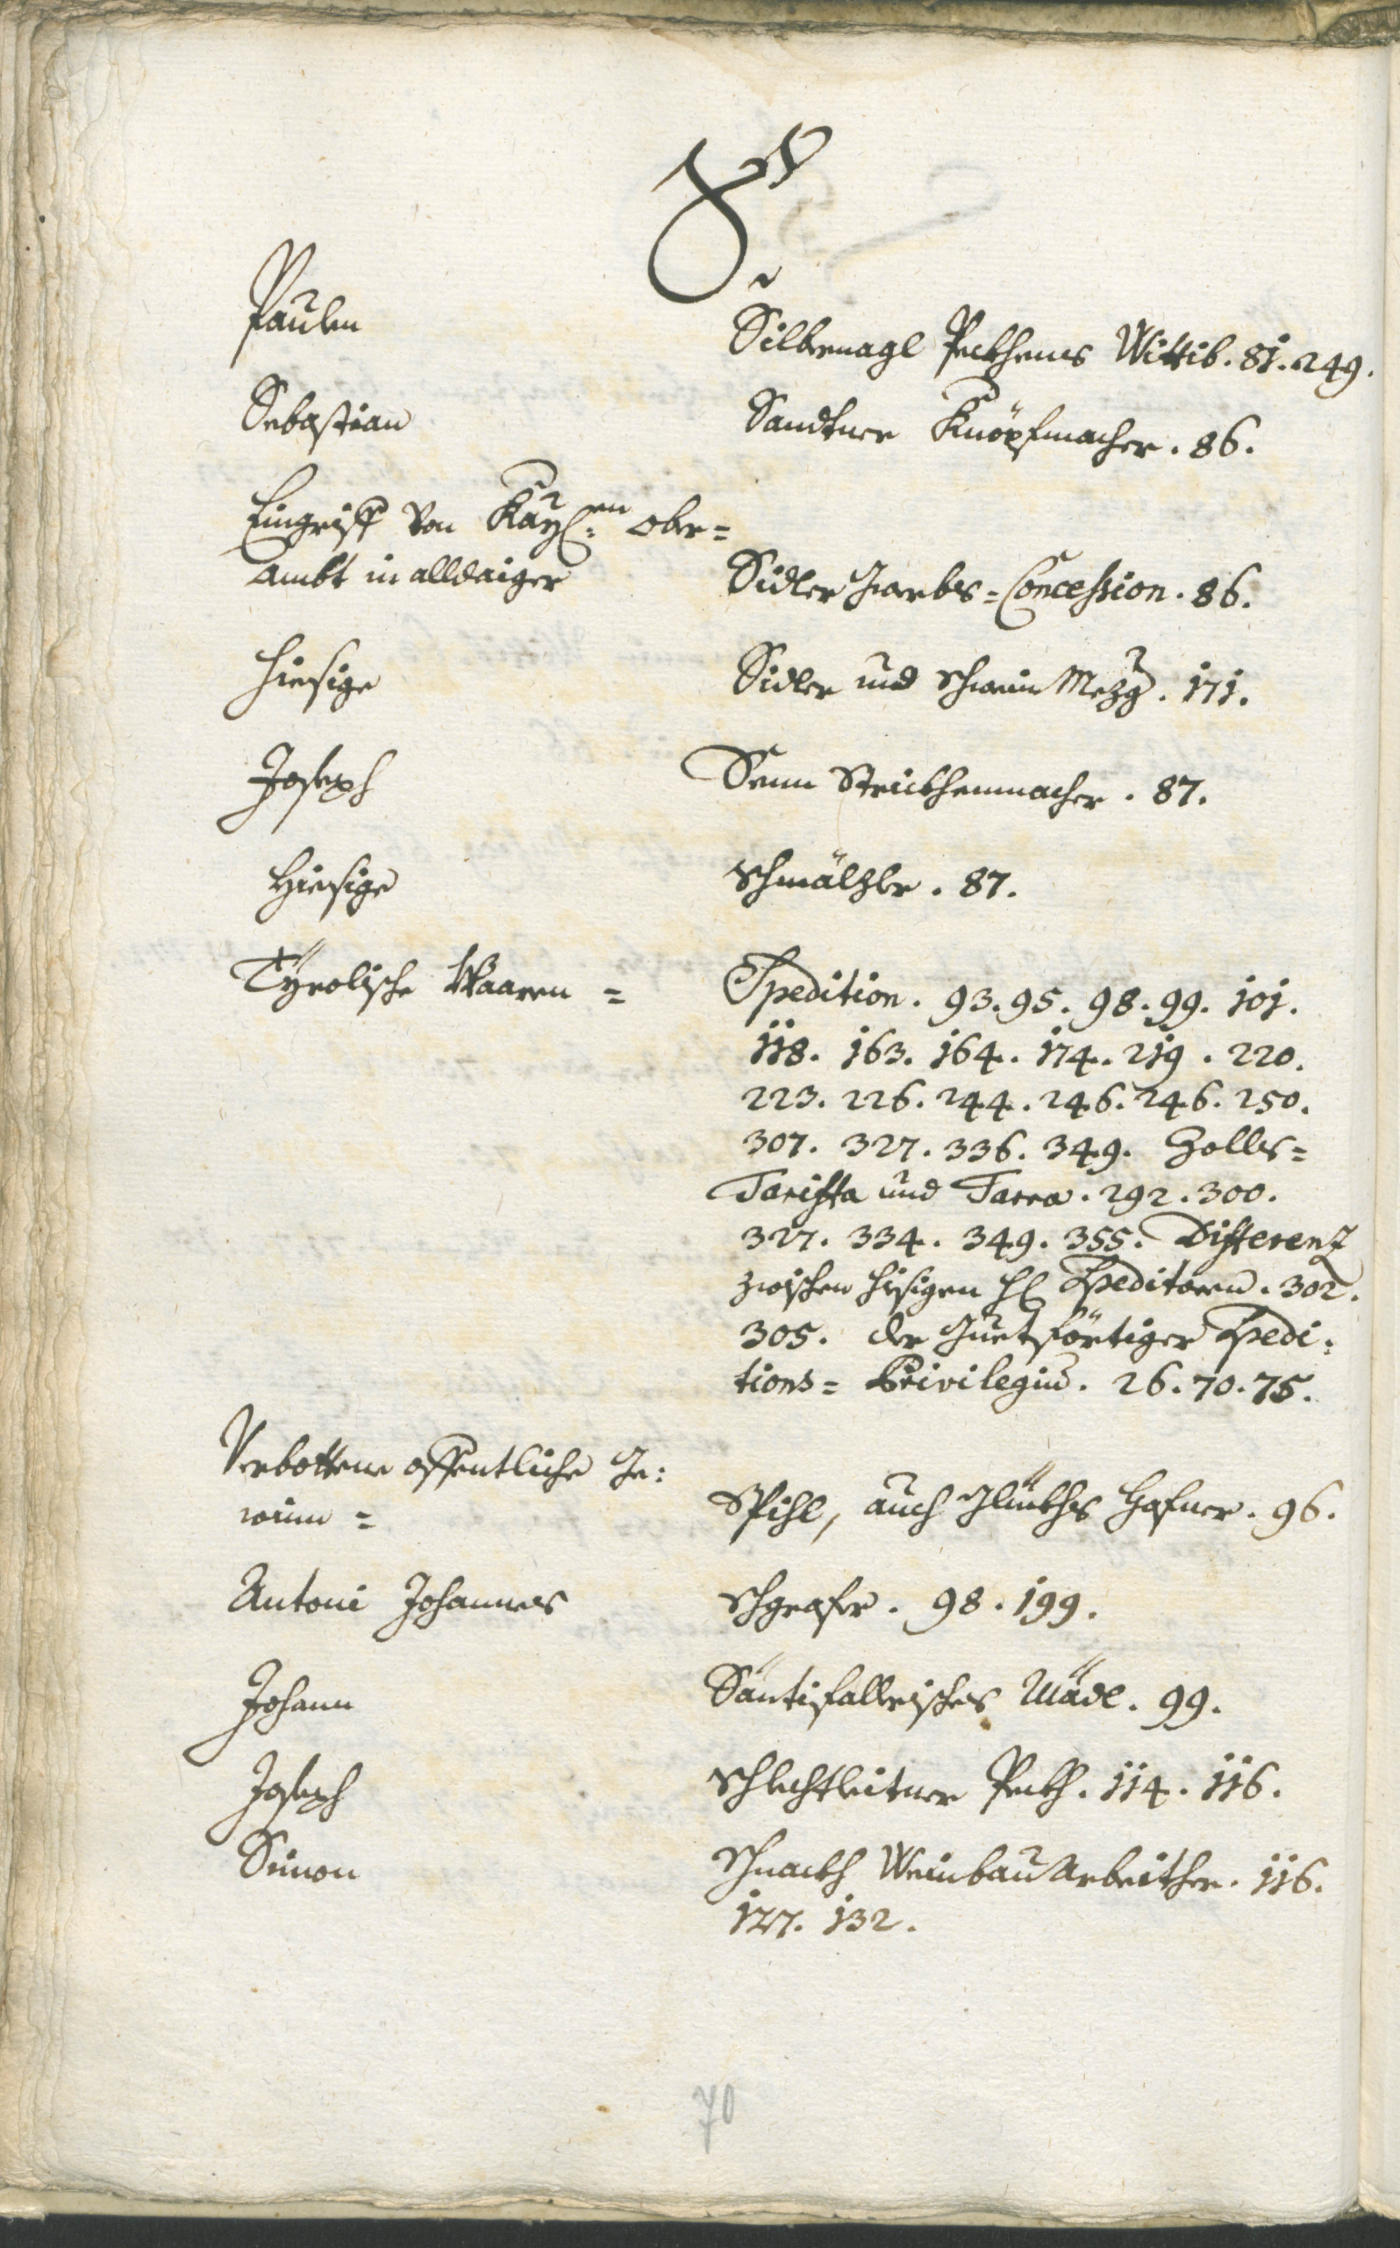 S.
Paulen Silbernagl Peckhens Wittib. 81. 249.
Sebastian Sandtner Knöpfmacher. 86.
Eingriff von Kay:en Ober=
Ambt in alldaiger Sidler Gwerbs=Concession. 86.
Hiesige Sidler und Schwein Mezg. 171.
Joseph Senn Strickhenmacher. 87.
Hiesige Schmälzler. 87.
Tÿrolische Waaren = Spedition. 93. 95. 98. 99. 101.
118. 163. 164. 174. 219. 220.
223. 226. 244. 246. 246. 250.
307. 327. 336. 349. Zolls=
Tariffa und Tarra. 292. 300.
327. 334. 349. 355. Differenz
zwischen hisigen H Speditorn. 302.
305. der Guetförtiger Spedi:
tions= Privilegiu. 26. 70. 75.
Verbottene offentliche Ge:
winn = Spihl, auch Glückhs Hafner. 96.
Antoni Johannes Schgrafer. 98. 199.
Johann Säntifallerisches Mädl. 99.
Joseph Schlechtleitner Peckh. 114. 116.
Simon Schnackh Weinbau Arbeither. 116.
127. 132.
70